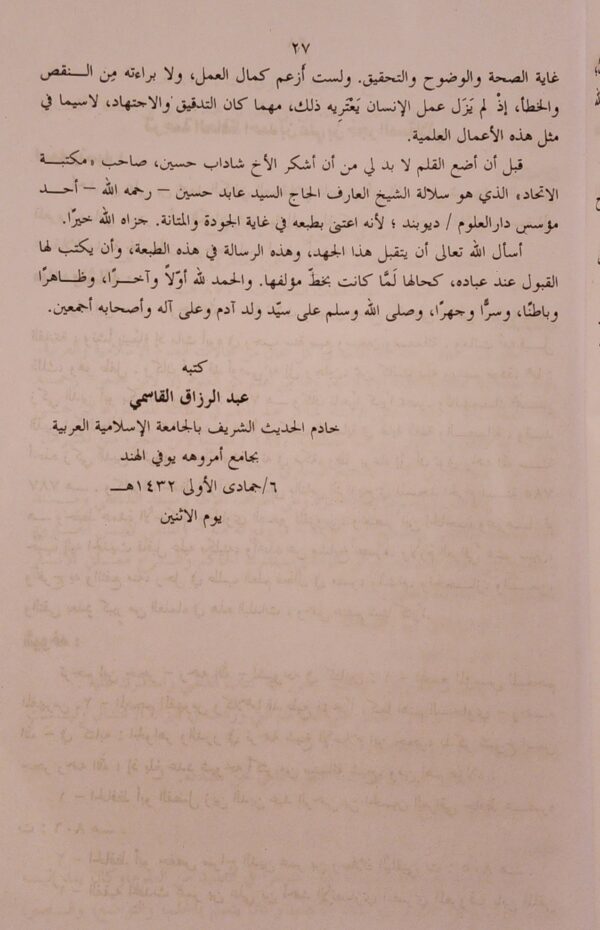 ٢٧
غاية الصحة والوضوح والتحقيق. ولست أَزعم كمال العمل، ولا براءته مِن الــنقص
والخطأ، إذْ لم يَزَل عمل الإنسان يَعْتَرِيه ذلك، مهما كان التدقيق والاجتهاد، لاسيما في
مثل هذه الأعمال العلمية.
قبل أن أضع القلم لا بد لي من أن أشكر الأخ شاداب حسين، صاحب «مكتبــة
الاتحاد» الذي هو سلالة الشيخ العارف الحاج السيد عابد حسين – رحمه الله – أحــد
مؤسس دارالعلوم / ديوبند ؛ لأنه اعتنىٰ بطبعه في غاية الجودة والمتانة. جزاه الله خيرًا.
أسأل الله تعالى أن يتقبل هذا الجهد، وهذه الرسالة في هذه الطبعة، وأن يكتب لها
القبول عند عباده، كحالها لَمَّا كانت بخطّ مؤلفها. والحمد لله أوّلاً وآخــرًا، وظــاهرًا
وباطنًا، وسرًّا وجهرًا، وصلى الله وسلم على سيّد ولد آدم وعلى آله وأصحابه أجمعين.
كتبه
عبد الرزاق القاسمي
خادم الحديث الشريف بالجامعة الإسلامية العربية
بجامع أمروهه يوفي الهند
٦/جمادى الأولى ١٤٣٢هــ
يوم الاثنين